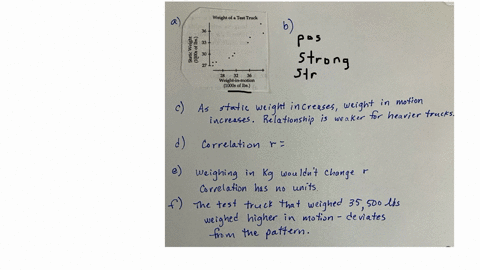 a)
Weight of a Test Truck
Static Weight
(1000s of lbs.)
36
33
30
27
28 32 36
Weight-in-motion
(1000s of lbs.)
b)
pos
strong
str
c) As static weight increases, weight in motion
increases. Relationship is weaker for heavier trucks.
d) Correlation r =
e) Weighing in Kg wouldn't change r
Correlation has no units.
f) The test truck that weighed 35,500 lbs
weighed higher in motion - deviates
from the pattern.